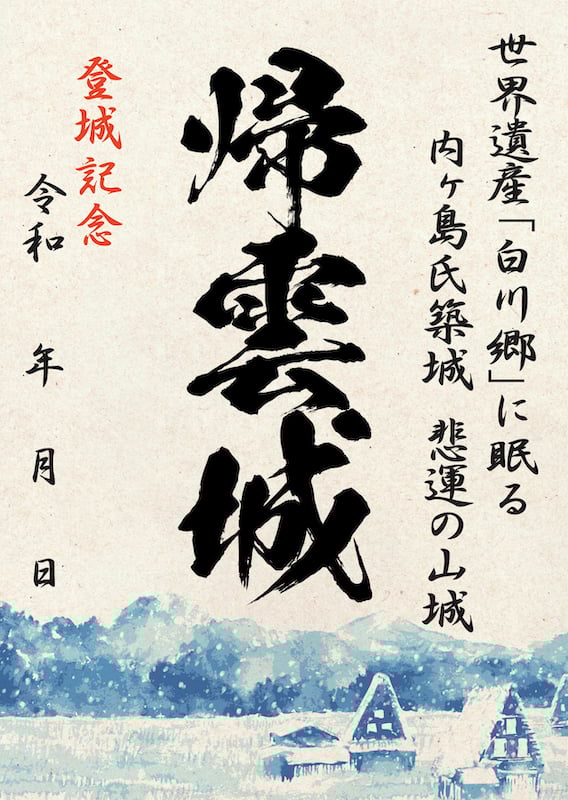 世界遺産「白川郷」に眠る
内ヶ島氏築城 悲運の山城
帰雲城
登城記念
令和 年 月 日